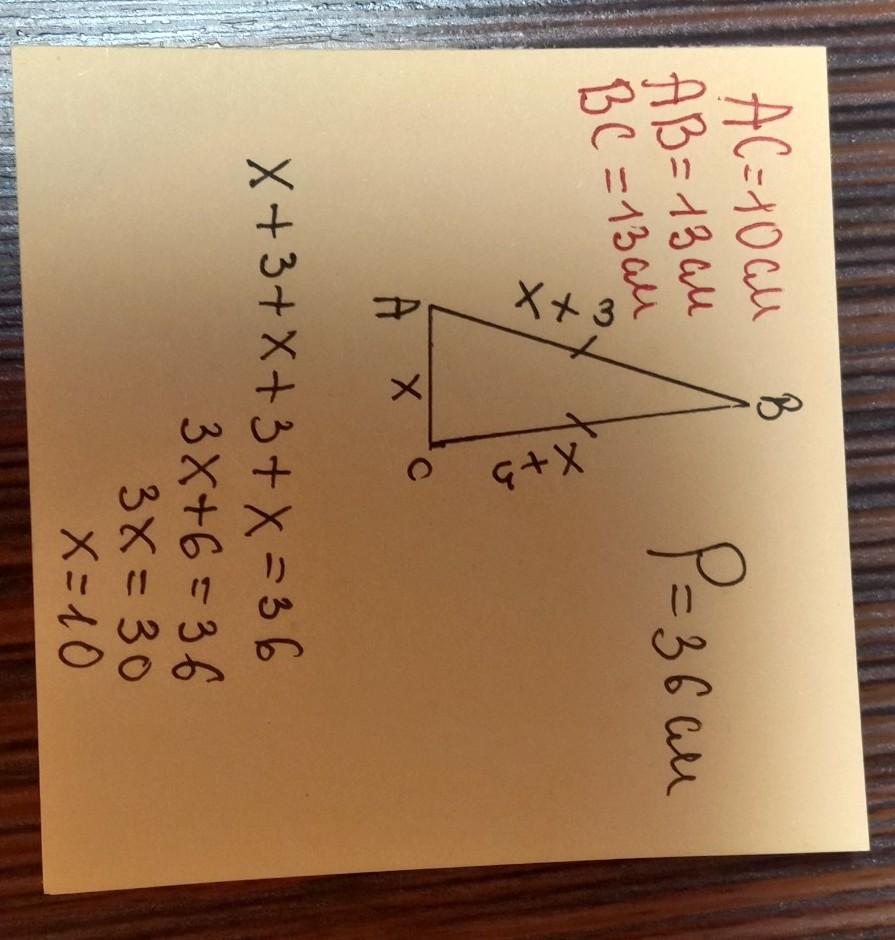 AC=10см
AB=13см
BC=13см
B
P=36см
x+3
x+3
A
x
C
x+3+x+3+x=36
3x+6=36
3x=30
x=10